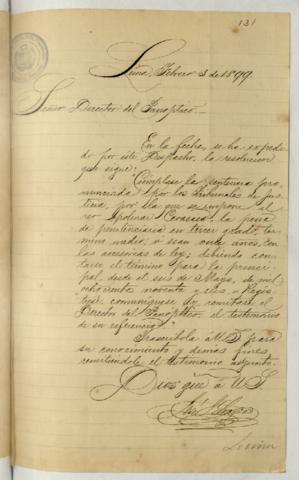 131
Lima, Febrero 3 de 1899.
Señor Director del Panóptico.
En la fecha, se ha expedi-
do por este Despacho, la resolucion
que sigue:
"Cúmplase la sentencia pro-
nunciada por los Tribunales de Jus-
ticia, por la que se impone al
reo Apolinar la pena
de penitenciaria en tercer grado, tér-
mino medio, o sean once años, con
las accesorias de ley; debiendo con-
tarse el término para la princi-
pal, desde el seis de Mayo, de mil
ochocientos noventa y seis. - Regis-
trese, comuníquese y remítase al
Director del Panóptico, el testimonio
de su referencia."
Trascríbola á US. para
su conocimiento y demás fines
remitiéndole el testimonio adjunto.
Dios gue. á US.